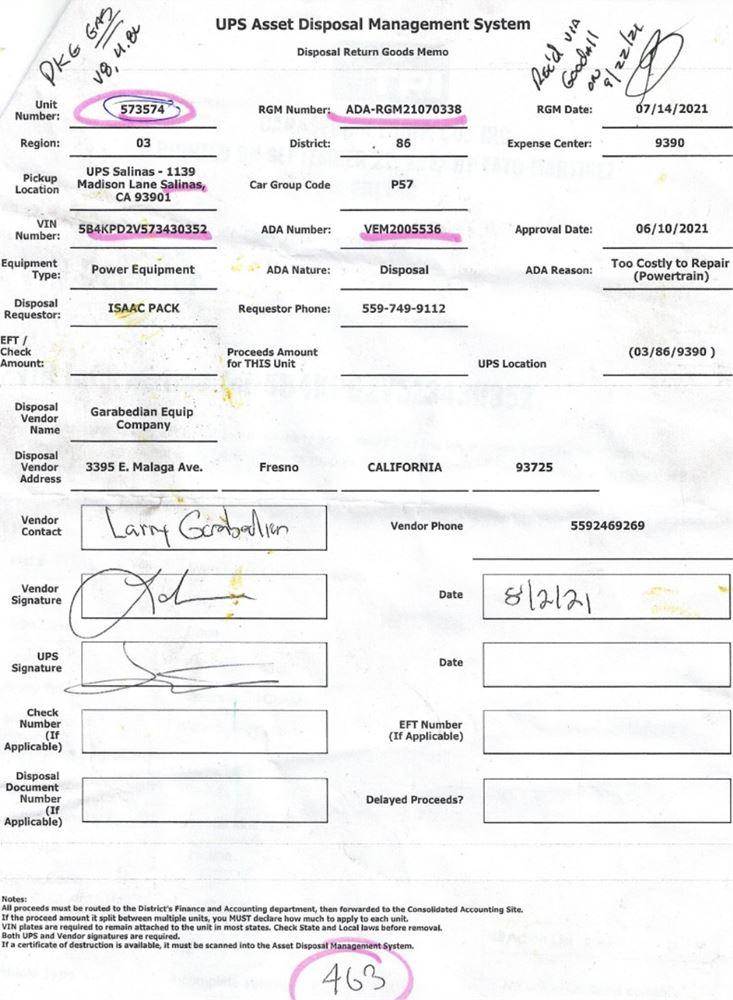 PKG GAS
V8, 4.8L
UPS Asset Disposal Management System
Disposal Return Goods Memo
Rec'd VIA
Goodall
on
9/22/21
Unit Number: 573574 RGM Number: ADA-RGM21070338 RGM Date: 07/14/2021
Region: 03 District: 86 Expense Center: 9390
Pickup Location UPS Salinas - 1139 Madison Lane Salinas, CA 93901 Car Group Code P57
VIN Number: 5B4KPD2V573430352 ADA Number: VEM2005536 Approval Date: 06/10/2021
Equipment Type: Power Equipment ADA Nature: Disposal ADA Reason: Too Costly to Repair (Powertrain)
Disposal Requestor: ISAAC PACK Requestor Phone: 559-749-9112
EFT / Check Amount: Proceeds Amount for THIS Unit UPS Location (03/86/9390 )
Disposal Vendor Name Garabedian Equip Company
Disposal Vendor Address 3395 E. Malaga Ave. Fresno CALIFORNIA 93725
Vendor Contact Larry Garabedian Vendor Phone 5592469269
Vendor Signature Date 8/2/21
UPS Signature Date
Check Number (If Applicable) EFT Number (If Applicable)
Disposal Document Number (If Applicable) Delayed Proceeds?
Notes:
All proceeds must be routed to the District's Finance and Accounting department, then forwarded to the Consolidated Accounting Site.
If the proceed amount it split between multiple units, you MUST declare how much to apply to each unit.
VIN plates are required to remain attached to the unit in most states. Check State and Local laws before removal.
Both UPS and Vendor signatures are required.
If a certificate of destruction is available, it must be scanned into the Asset Disposal Management System.
463